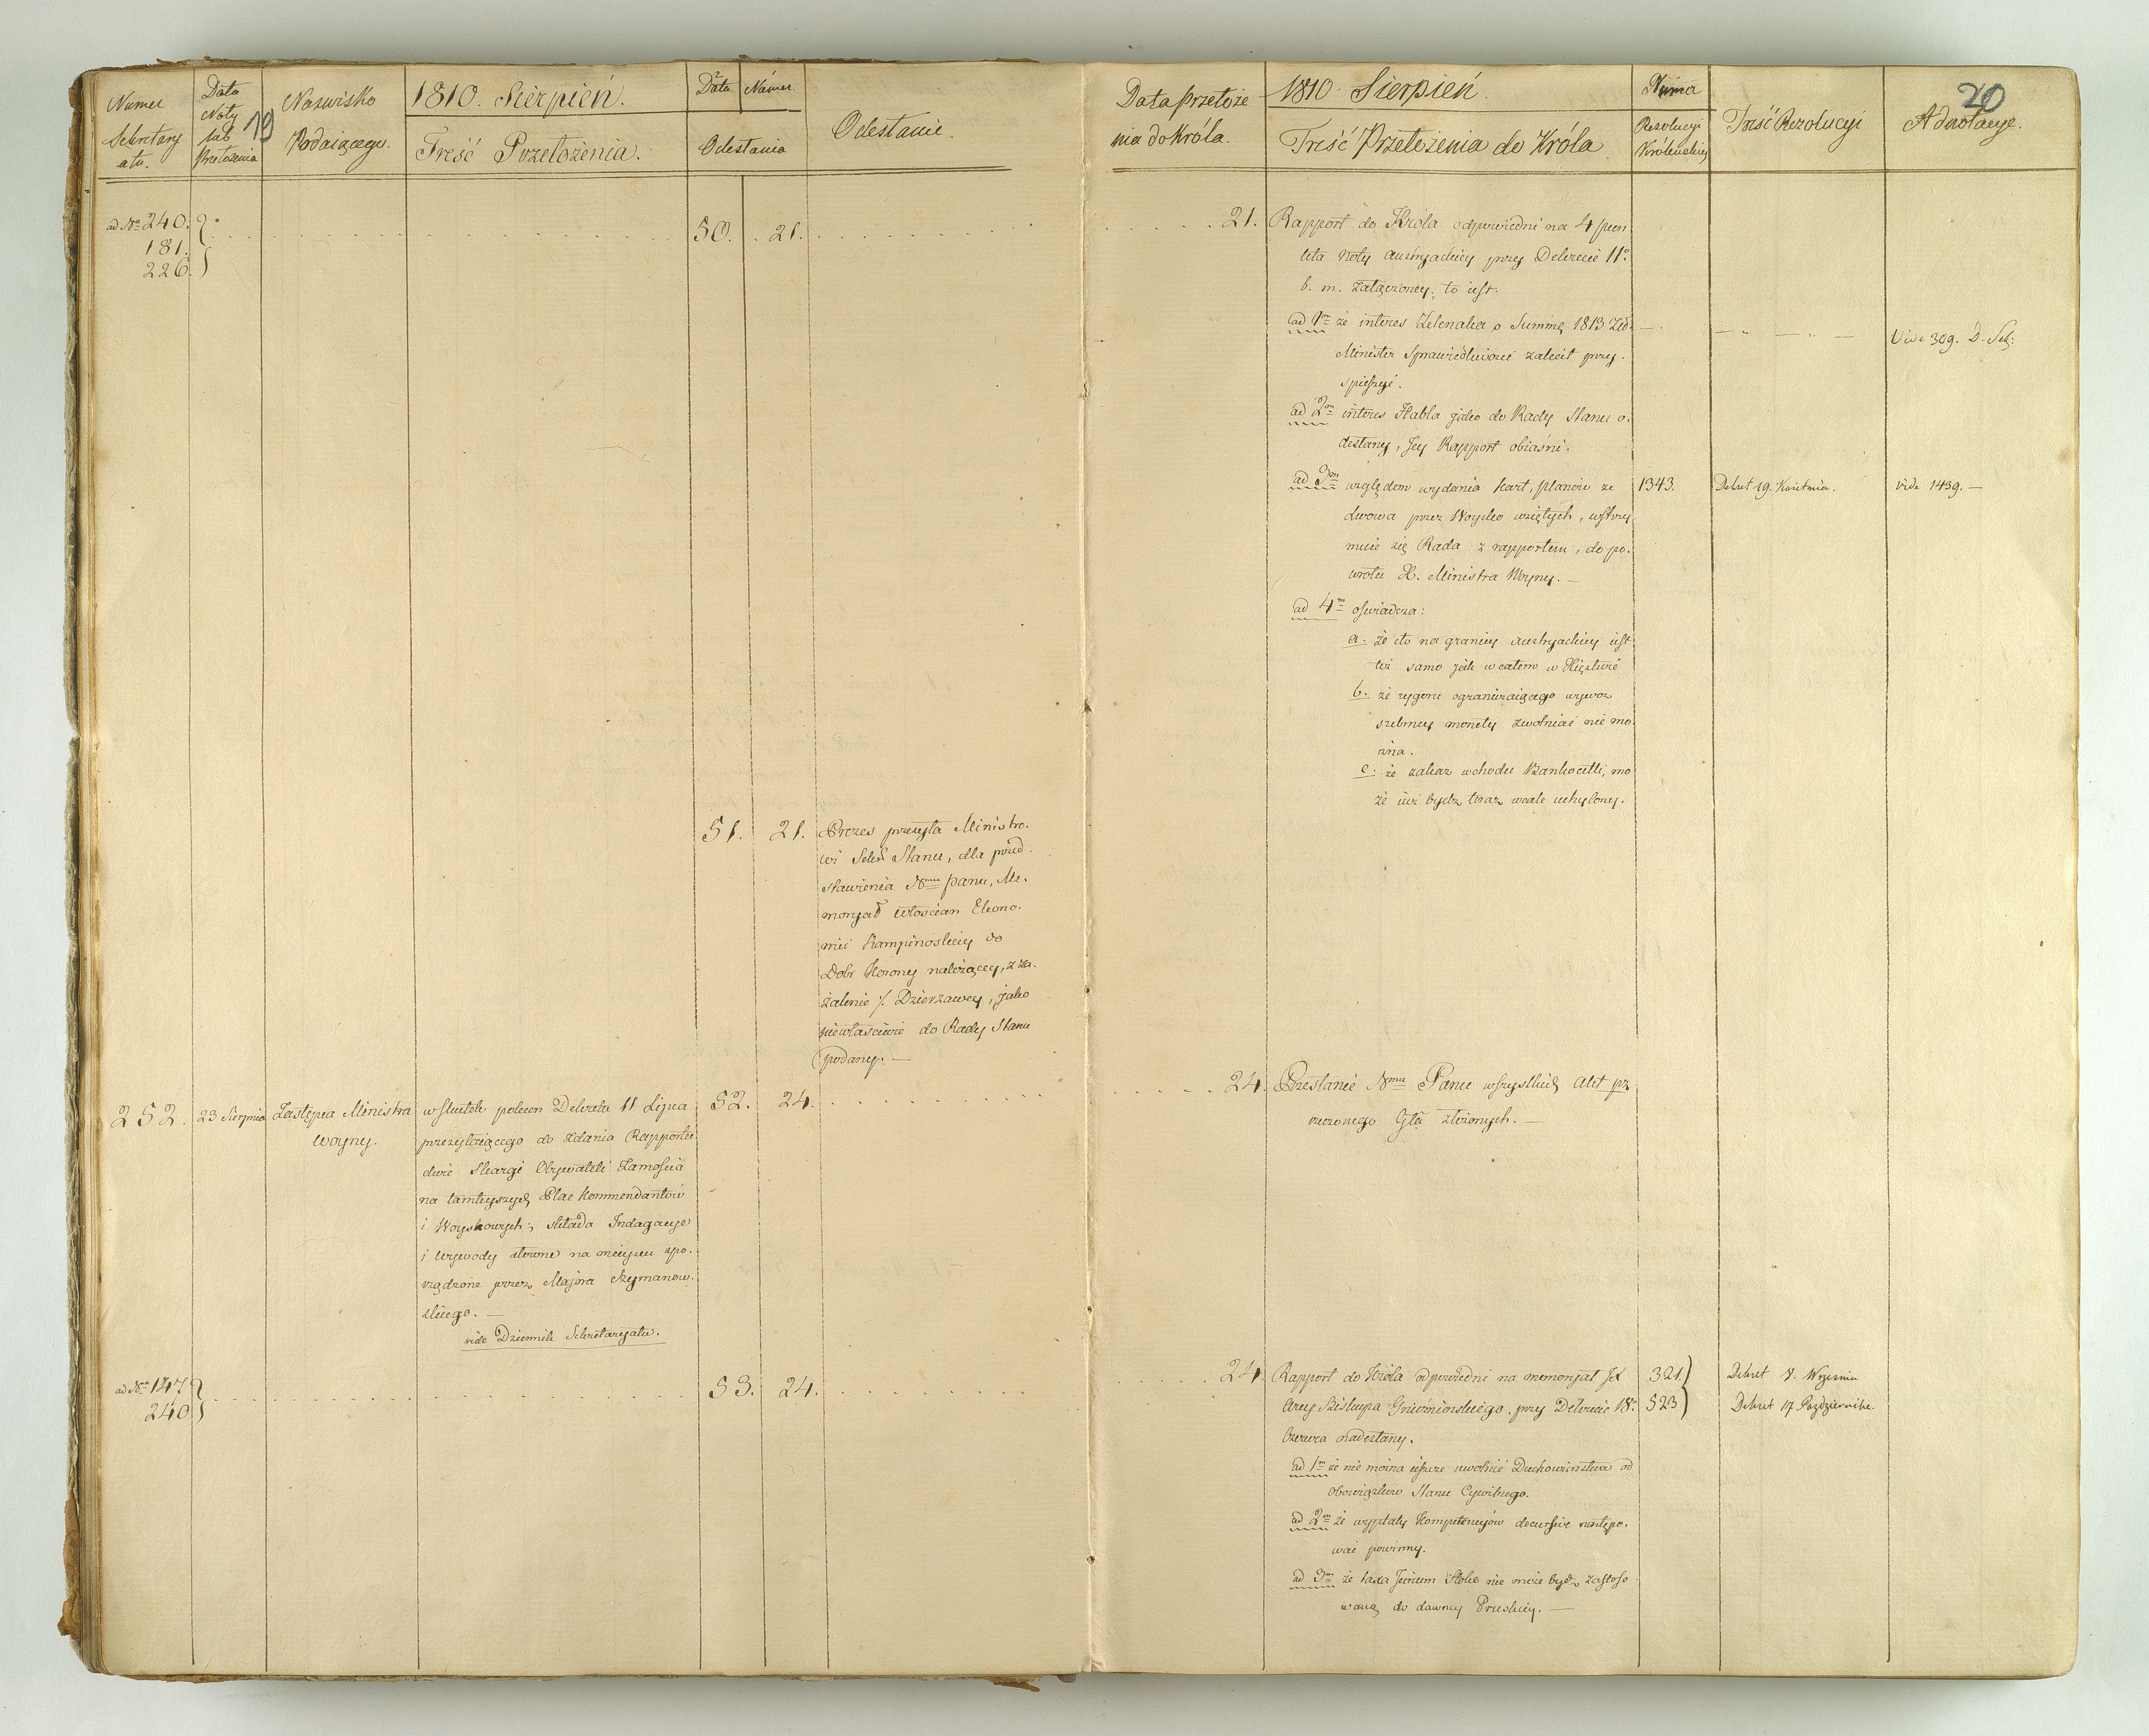 Numer
Sekretary
atu.
Data
Noty
lub
Przełożenia
19
Nazwisko
Podaiącego.
1810. Sierpień.
Treść Przełożenia.
Data Numer
Odesłania
Odesłanie.
ad Nra 240.
181.
226.
50. 21.
51. 21. Prezes przesyła Ministro.
wi Sekr Stanu, dla przed.
stawienia Nmu Panu, Me.
moryał włościan Ekono.
mii Kampinoskiey do
Dobr Korony należącey, z za.
żalenie /. Dzierzawcy, jako
niewłaściwie do Rady Stanu
podany. —
252. 23 Sierpnia Zastępca Ministra
Woyny.
w skutek polecen Dekretu 11 Lipca
przesyłaiącego do zdania Rapportu
dwie Skargi Obywateli Zamościa
na tamteyszych Plac Kommendantów
i Woyskowych; składa Indagacye
i wywody słowne na mieyscu spo.
rządzone przez Majora Szymanow.
skiego. —
vide Dziennik Sekretaryatu.
52. 24.
ad Nra 147
240
53. 24.
Data Przełoże
nia do Króla.
1810 Sierpień.
Treść Przełożenia do Króla
Numer
Rezolucyi
Królewskiey
Treść Rezolucyi
20
Adnotacye.
21. Rapport do Króla odpowiedni na 4 pun
kta Noty austryackiey przy Dekrecie 11o
b. m. załączoney, to iest.
ad 1m że interes Zelenaka o Summę 1813 Zło. —
Minister Sprawiedliwości zalecił przy.
spieszyć.
Vide 309. D. Sek:
ad 2m interes Habla jako do Rady Stanu o.
desłany, Jey Rapport obiaśni.
ad 3m względem wydania kart, planów ze
Lwowa przez Woysko wziętych, wstrzy
muie się Rada z rapportem, do po.
wrotu X. Ministra Woyny. —
1343. Dekret 19. Kwietnia. vide 1439. —
ad 4m oświadcza:
a. że cło na granicy austryackiey iest
też samo jak w całem w Xięstwie
b. że rygoru ograniczaiącego wywoz
srebrney monety zwolniać nie mo
żna.
c. że zakaz wchodu Bankocetli, mo
że iuż bydz teraz wcale uchylony.
24. Przesłanie Nmu Panu wszystkich Akt pr
rzeczonego Gła złożonych. —
24. Rapport do Króla odpowiedni na memoryał JX
Arcy Biskupa Gnieźnienskiego, przy Dekrecie 18o
Czerwca nadesłany.
321.
523
Dekret 7. Września
Dekret 17 Październike.
ad 1m że nie można ieszcze uwolnić Duchowieństwa od
obowiązków Stanu Cywilnego.
ad 2m że wypłaty Kompetencyów decursive nastepo.
wać powinny.
ad 3m że taxa Jurium Stolæ nie może bydz zastoso
waną do dawney Pruskiey. —